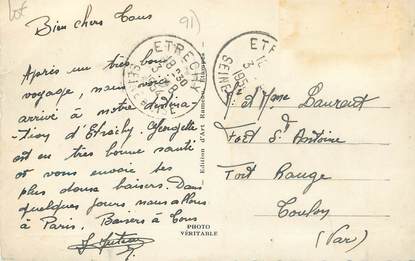 Lot
91)
Bien chers Tous
Après un très bon
voyage, nous voici
arrivé à notre destina-
tion d'Etréchy. Georgette
est en très bonne santé
et vous envoie ses
plus doux baisers. Dans
quelques jours nous allons
à Paris. Baisers à Tous
ETRECHY
18
SEINE
Edition d'Art Etampes
PHOTO
VÉRITABLE
ETRE
SEINE
1954
M et Mme Laurent
Fort St Antoine
Fort Rouge
Toulon
(Var)